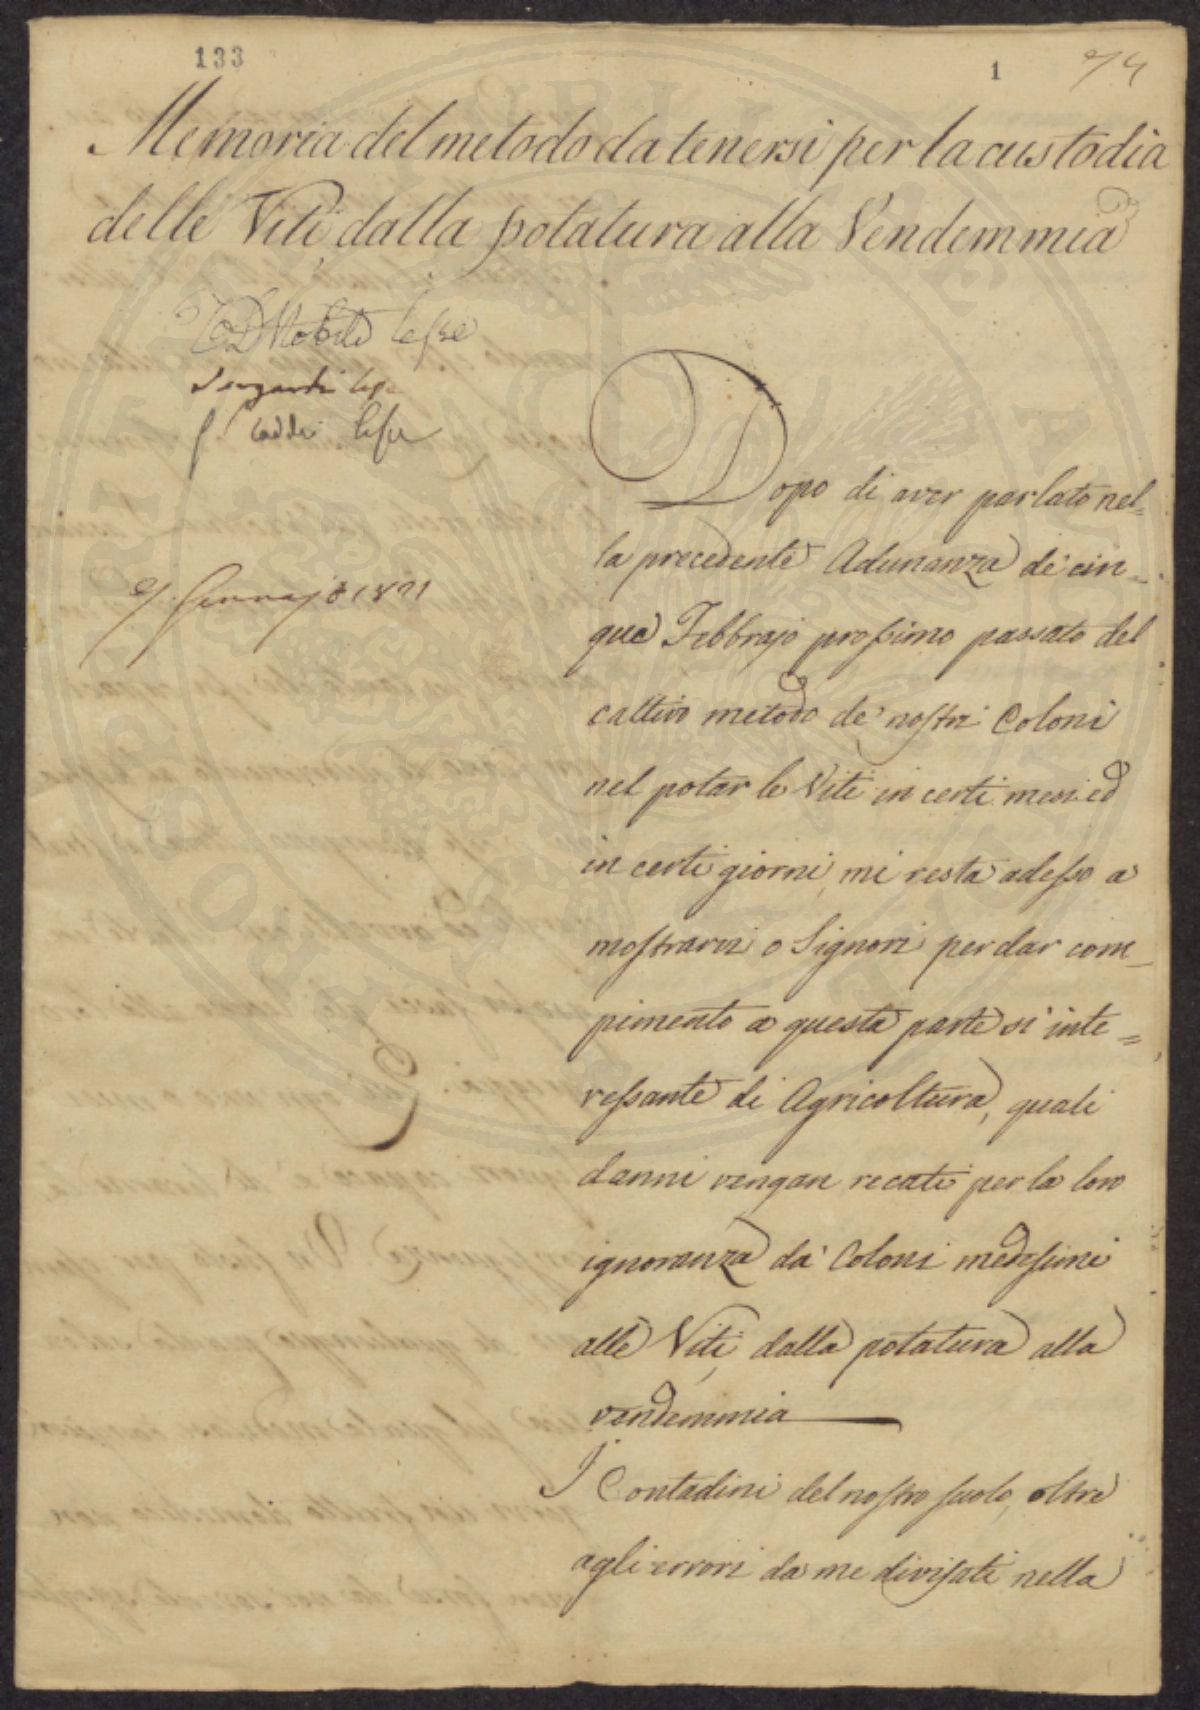 133
1
74
Memoria del metodo da tenersi per la custodia
delle Viti, dalla potatura alla Vendemmia
Nobili lesse
lesse
Taddei lesse
Gennajo 1821
Dopo di aver parlato nel=
la precedente Adunanza de' cin-
que Febbrajo prossimo passato del
cattivo metodo de' nostri Coloni
nel potar le Viti in certi mesi ed
in certi giorni, mi resta adesso a
mostrarvi o Signori per dar com-
pimento a questa parte sì inte=
ressante di Agricoltura, quali
danni vengan recati per la loro
ignoranza da' Coloni medesimi
alle Viti, dalla potatura alla
vendemmia
I Contadini del nostro suolo, oltre
agli errori da me divisati nella